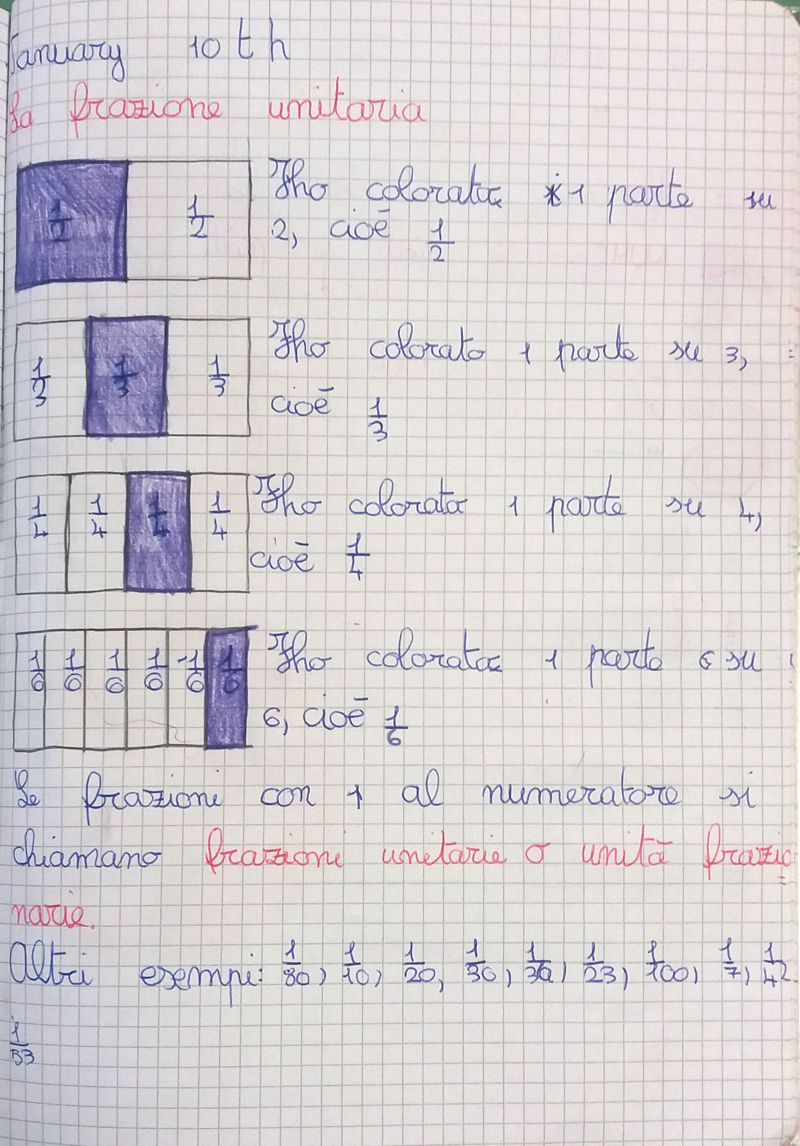 January 10th
La frazione unitaria
1/2 1/2 Ho colorato 1 parte su
2, cioè 1/2
1/3 1/3 1/3 Ho colorato 1 parte su 3,
cioè 1/3
1/4 1/4 1/4 1/4 Ho colorato 1 parte su 4,
cioè 1/4
1/6 1/6 1/6 1/6 1/6 1/6 Ho colorato 1 parte su
6, cioè 1/6
Le frazioni con 1 al numeratore si
chiamano frazioni unitarie o unità frazio=
narie.
Altri esempi: 1/80, 1/10, 1/20, 1/30, 1/23, 1/100, 1/7, 1/42
1/53